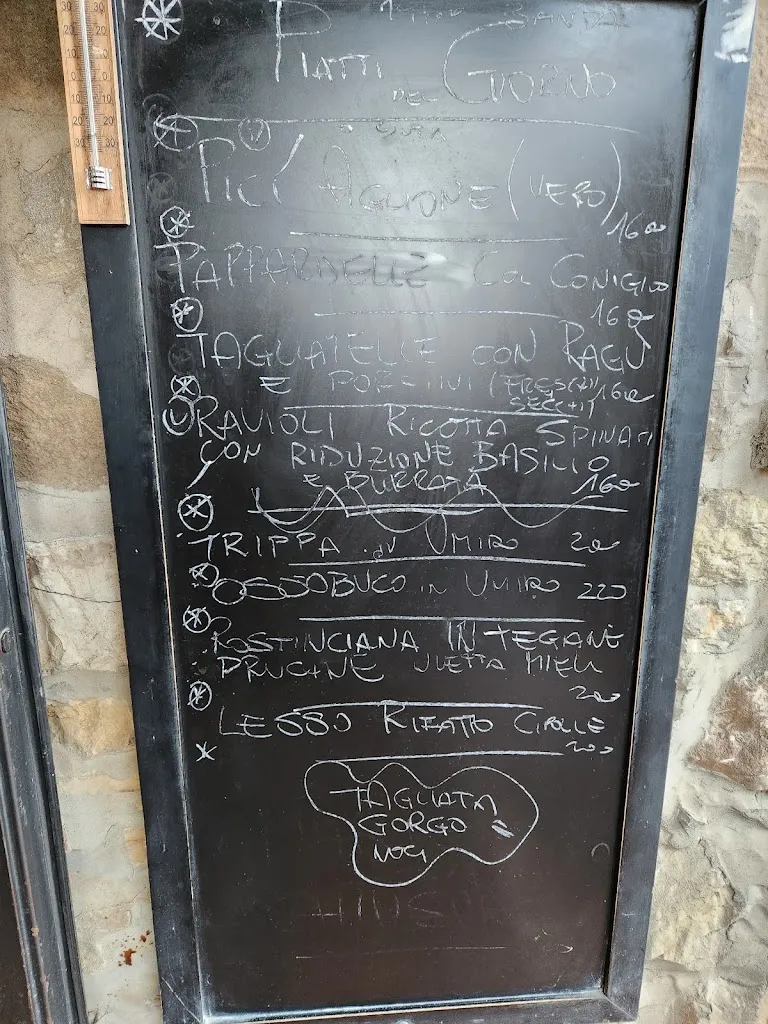 PIATTI
DEL GIORNO
PICI AGLIONE (VERO)
1600
PAPPARDELLE COL CONIGLIO
1600
TAGLIATELLE CON RAGÙ
E PORCINI (FRESCHI/ 1600
SECCHI)
RAVIOLI RICOTTA SPINACI
CON RIDUZIONE BASILICO
E BURRATA 1600
TRIPPA IN UMIDO 200
OSSOBUCO IN UMIDO 220
ROSTINCIANA IN TEGAME
PRUGNE UVETTA MIELE
200
LESSO RIFATTO CIPOLLE
200
TAGLIATA
GORGO =
NOCI